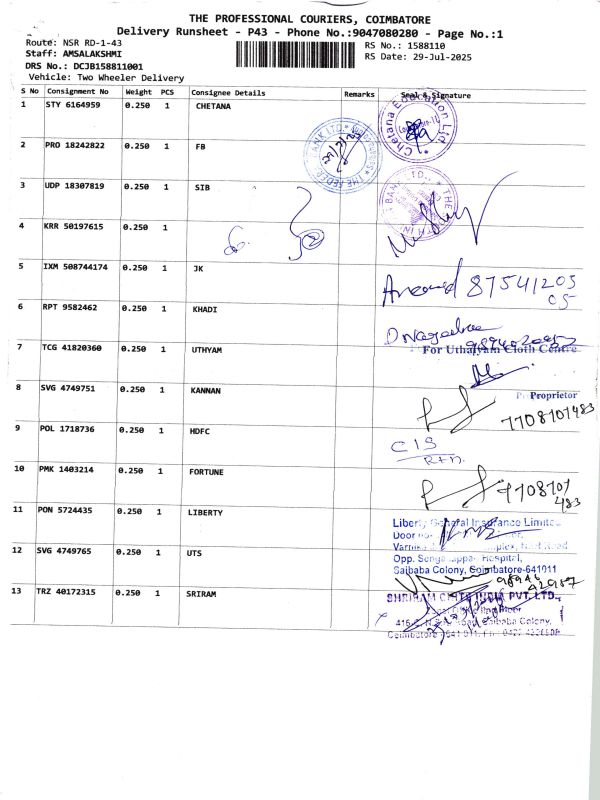 THE PROFESSIONAL COURIERS, COIMBATORE
Delivery Runsheet - P43 - Phone No.:9047080280 - Page No.:1
Route: NSR RD-1-43
RS No.: 1588110
Staff: AMSALAKSHMI
RS Date: 29-Jul-2025
DRS No.: DCJB158811001
Vehicle: Two Wheeler Delivery
S No Consignment No Weight PCS Consignee Details Remarks Seal & Signature
1 STY 6164959 0.250 1 CHETANA
Chetana Education Ltd.
2 PRO 18242822 0.250 1 FB
3 UDP 18307819 0.250 1 SIB
4 KRR 50197615 0.250 1
5 IXM 508744174 0.250 1 JK
87541205
05
6 RPT 9582462 0.250 1 KHADI
7 TCG 41820360 0.250 1 UTHYAM
For Uthaiyam Cloth Centre
Proprietor
8 SVG 4749751 0.250 1 KANNAN
7708107483
9 POL 1718736 0.250 1 HDFC
CIS
Rtn.
10 PMK 1403214 0.250 1 FORTUNE
7708707
483
11 PON 5724435 0.250 1 LIBERTY
Liberty General Insurance Limited
Door
Opp. Hospital,
Saibaba Colony, Coimbatore-641011
12 SVG 4749765 0.250 1 UTS
98946
42957
13 TRZ 40172315 0.250 1 SRIRAM
SHRIRAM CHITS INDIA PVT. LTD.,
Saibaba Colony,
Coimbatore